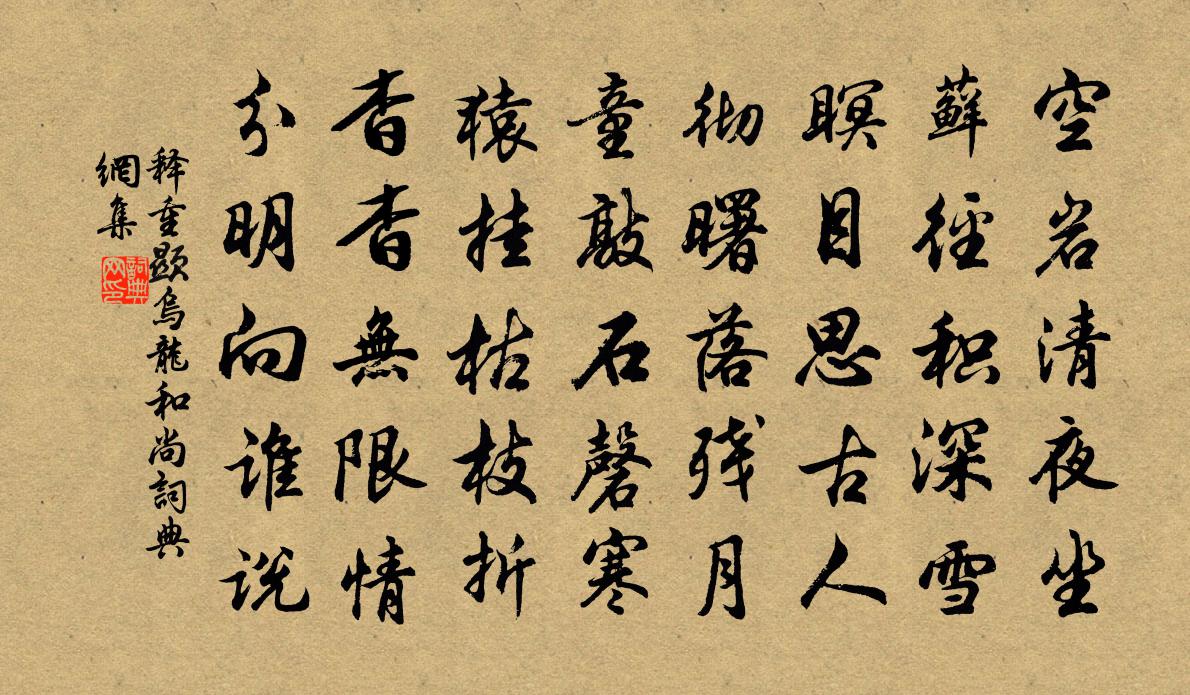 空岩清夜坐
蘚徑积深雪
瞑目思古人
彻曙落残月
童敲石磬寒
猿挂枯枝折
杳杳無限情
分明向谁说
释重顯烏龍和尚詞典
網集
詞典
网印